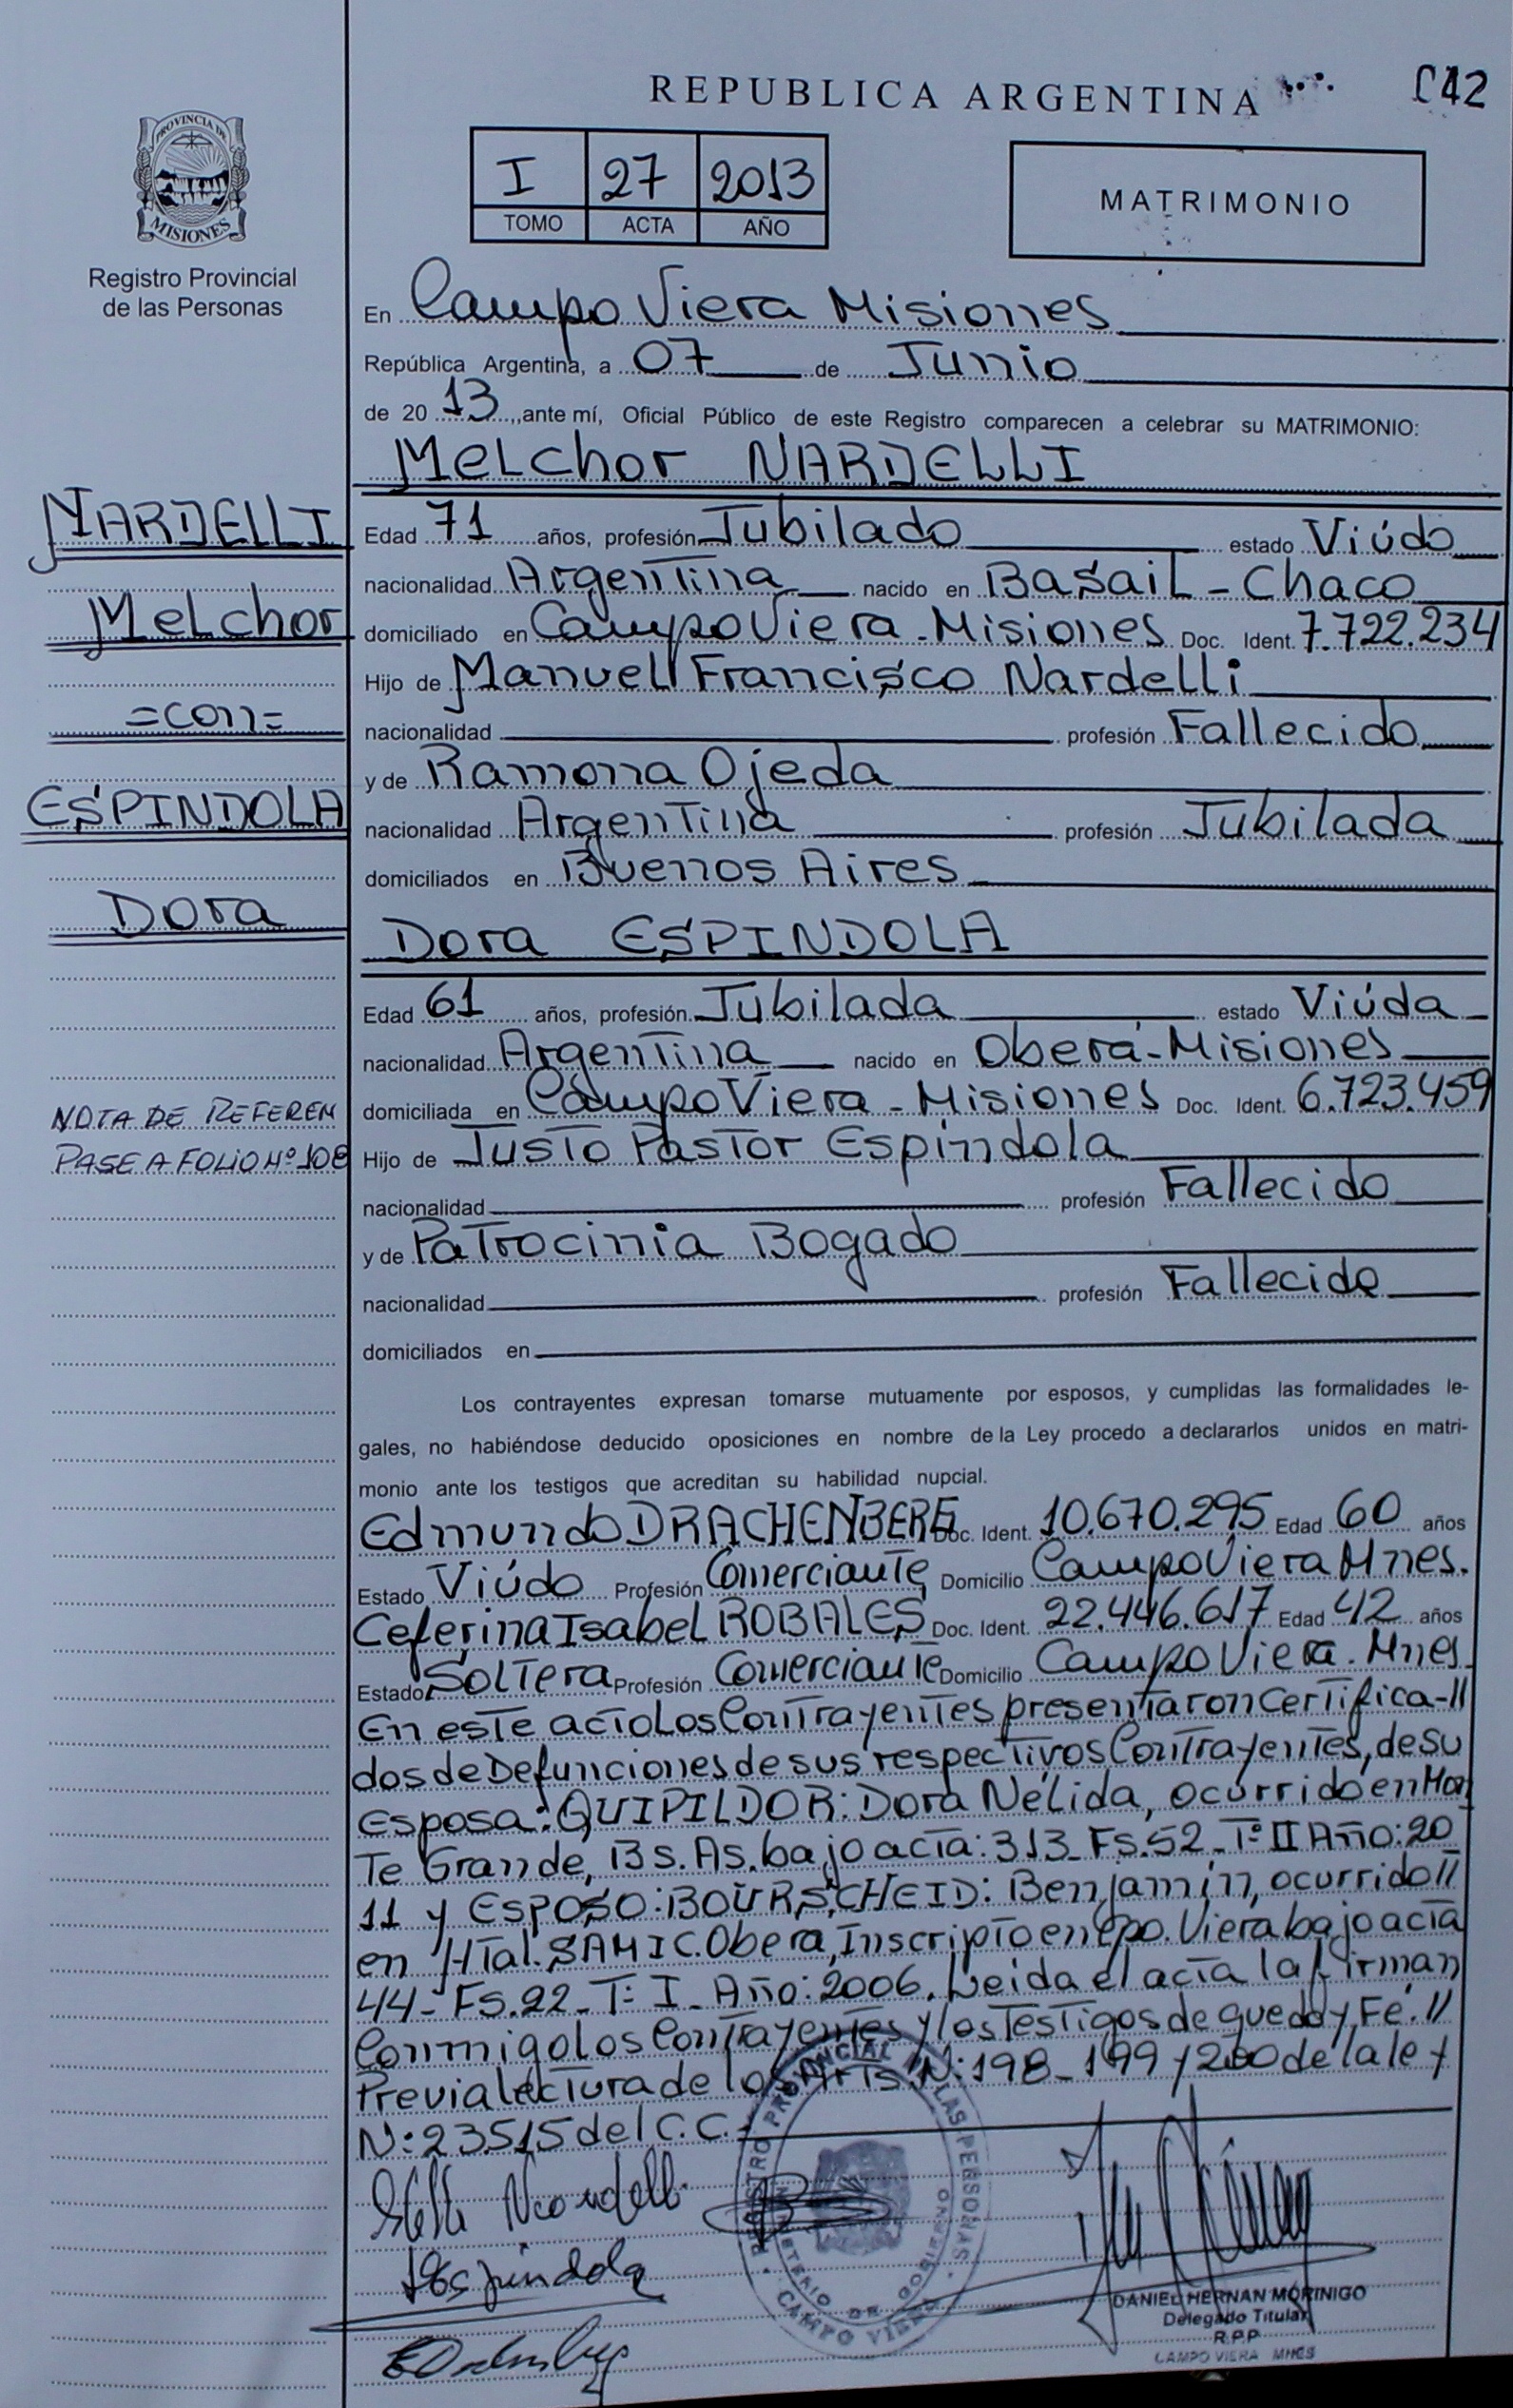 REPUBLICA ARGENTINA
C42
PROVINCIA DE
MISIONES
Registro Provincial
de las Personas
I 27 2013
TOMO ACTA AÑO
MATRIMONIO
En Campo Viera Misiones
República Argentina, a 07 de Junio
de 20 13, ante mí, Oficial Público de este Registro comparecen a celebrar su MATRIMONIO:
Melchor NARDELLI
NARDELLI
Melchor
=con=
ESPINDOLA
Dora
NOTA DE REFEREN
PASE A FOLIO Nº 108
Edad 71 años, profesión Jubilado estado Viúdo
nacionalidad Argentina nacido en Basail - Chaco
domiciliado en Campo Viera - Misiones Doc. Ident. 7.722.234
Hijo de Manuel Francisco Nardelli
nacionalidad profesión Fallecido
y de Ramona Ojeda
nacionalidad Argentina profesión Jubilada
domiciliados en Buenos Aires
Dora ESPINDOLA
Edad 61 años, profesión Jubilada estado Viúda
nacionalidad Argentina nacido en Oberá - Misiones
domiciliada en Campo Viera - Misiones Doc. Ident. 6.723.459
Hijo de Justo Pastor Espíndola
nacionalidad profesión Fallecido
y de Patrocinia Bogado
nacionalidad profesión Fallecida
domiciliados en
Los contrayentes expresan tomarse mutuamente por esposos, y cumplidas las formalidades le-
gales, no habiéndose deducido oposiciones en nombre de la Ley procedo a declararlos unidos en matri-
monio ante los testigos que acreditan su habilidad nupcial.
Edmundo DRACHENBERG Doc. Ident. 10.670.295 Edad 60 años
Estado Viúdo Profesión Comerciante Domicilio Campo Viera Mnes.
Ceferina Isabel ROBALES Doc. Ident. 22.446.617 Edad 42 años
Estado Soltera Profesión Comerciante Domicilio Campo Viera. Mnes.
En este acto Los Contrayentes presentaron Certifica-//
dos de Defunciones de sus respectivos Contrayentes, de su
Esposa: QUIPILDOR: Dora Nélida, ocurrido en Mon
Te Grande, Bs. As. bajo acta: 313 - Fs. 52 - Tº II Año: 20
11 y ESPOSO: BOURSCHEID: Benjamín, ocurrido //
en Htal. SAMIC. Obera, Inscripto en Cpo. Viera bajo acta
44 - Fs. 22 - Tº I - Año: 2006. Leida el acta la firman
Conmigo los Contrayentes y los Testigos de que doy Fé. //
Previa lectura de los Arts. N: 198 - 199 y 200 de la ley
N: 23515 del C.C.
REGISTRO PROVINCIAL DE LAS PERSONAS
MINISTERIO DE GOBIERNO
CAMPO VIERA
Nardelli
Espindola
DANIEL HERNAN MORINIGO
Delegado Titular
R.P.P
CAMPO VIERA MNES